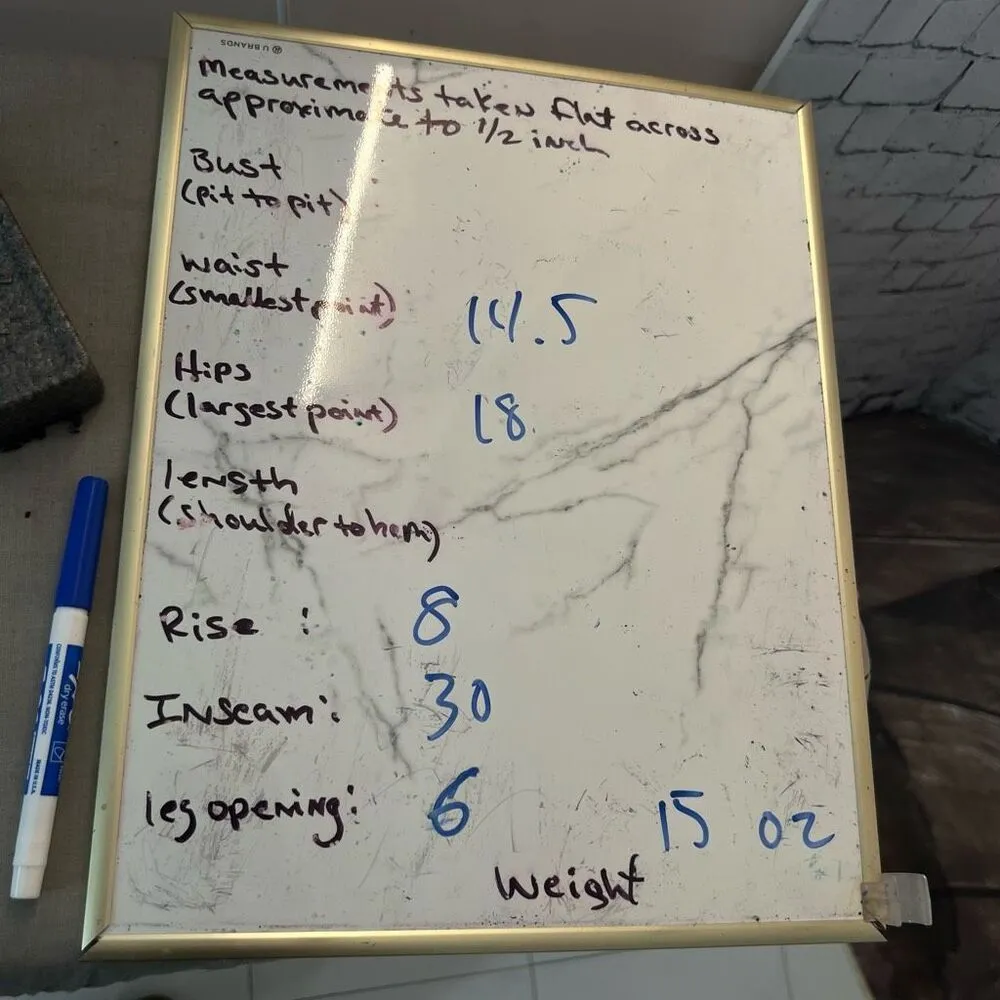 U BRANDS
Measurements taken flat across
approximate to 1/2 inch
Bust
(pit to pit)
Waist
(smallest point) 14.5
Hips
(largest point) 18
length
(shoulder to hem)
Rise : 8
Inseam: 30
leg opening: 6 15 oz
Weight
dry erase
CONFORMS TO ASTM D4236 NON-TOXIC
MADE IN U.S.A.